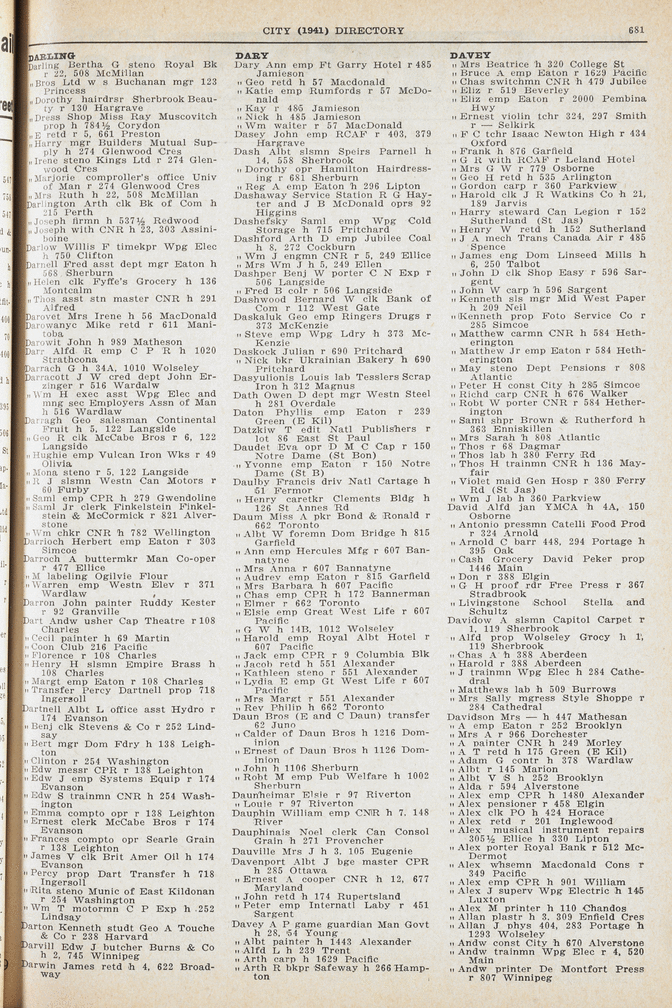 CITY (1941) DIRECTORY 681
DARLING
Darling Bertha G steno Royal Bk
r 22, 508 McMillan
„ Bros Ltd w s Buchanan mgr 123
Princess
„ Dorothy hairdrsr Sherbrook Beau-
ty r 130 Hargrave
„ Dress Shop Miss Ray Muscovitch
prop h 784½ Corydon
„ E retd r 5, 661 Preston
„ Harry mgr Builders Mutual Sup-
ply h 274 Glenwood Cres
„ Irene steno Kings Ltd r 274 Glen-
wood Cres
„ Marjorie comproller's office Univ
of Man r 274 Glenwood Cres
„ Mrs Ruth h 22, 508 McMillan
Darlington Arth clk Bk of Com h
215 Perth
„ Joseph firmn h 537½ Redwood
„ Joseph with CNR h 23, 303 Assini-
boine
Darlow Willis F timekpr Wpg Elec
h 750 Clifton
Darnell Fred asst dept mgr Eaton h
568 Sherburn
„ Helen clk Fyffe's Grocery h 136
Montcalm
„ Thos asst stn master CNR h 291
Alfred
Darovet Mrs Irene h 56 MacDonald
Darowanyc Mike retd r 611 Mani-
toba
Darowit John h 989 Matheson
Darr Alfd R emp C P R h 1020
Strathcona
Darrach G h 34A, 1010 Wolseley
Darracott J W cred dept John Er-
zinger r 516 Wardalw
„ Wm H exec asst Wpg Elec and
mng sec Employers Assn of Man
h 516 Wardlaw
Darragh Geo salesman Continental
Fruit h 5, 122 Langside
„ Geo R clk McCabe Bros r 6, 122
Langside
„ Hughie emp Vulcan Iron Wks r 49
Olivia
„ Mona steno r 5, 122 Langside
„ R J slsmn Westn Can Motors r
60 Furby
„ Saml emp CPR h 279 Gwendoline
„ Saml Jr clerk Finkelstein Finkel-
stein & McCormick r 821 Alver-
stone
„ Wm chkr CNR h 782 Wellington
Darrioch Herbert emp Eaton r 303
Simcoe
Darroch A buttermkr Man Co-oper
r 477 Ellice
„ M labeling Ogilvie Flour
„ Warren emp Westn Elev r 371
Wardlaw
Darron John painter Ruddy Kester
r 92 Granville
Dart Andw usher Cap Theatre r 108
Charles
„ Cecil painter h 69 Martin
„ Coon Club 216 Pacific
„ Florence r 108 Charles
„ Henry H slsmn Empire Brass h
108 Charles
„ Margt emp Eaton r 108 Charles
„ Transfer Percy Dartnell prop 718
Ingersoll
Dartnell Albt L office asst Hydro r
174 Evanson
„ Benj clk Stevens & Co r 252 Lind-
say
„ Bert mgr Dom Fdry h 138 Leigh-
ton
„ Clinton r 254 Washington
„ Edw messr CPR r 138 Leighton
„ Edw J emp Systems Equip r 174
Evanson
„ Edw S trainmn CNR r 254 Wash-
ington
„ Emma compto opr r 138 Leighton
„ Ernest clerk McCabe Bros r 174
Evanson
„ Frances compto opr Searle Grain
r 138 Leighton
„ James V clk Brit Amer Oil h 174
Evanson
„ Percy prop Dart Transfer h 718
Ingersoll
„ Rita steno Munic of East Kildonan
r 254 Washington
„ Wm T motormn C P Exp h 252
Lindsay
Darton Kenneth studt Geo A Touche
& Co r 238 Harvard
Darvill Edw J butcher Burns & Co
h 2, 745 Winnipeg
Darwin James retd h 4, 622 Broad-
way
DARY
Dary Ann emp Ft Garry Hotel r 485
Jamieson
„ Geo retd h 57 Macdonald
„ Katie emp Rumfords r 57 McDo-
nald
„ Kay r 485 Jamieson
„ Nick h 485 Jamieson
„ Wm waiter r 57 MacDonald
Dasey John emp RCAF r 403, 379
Hargrave
Dash Albt slsmn Speirs Parnell h
14, 558 Sherbrook
„ Dorothy opr Hamilton Hairdress-
ing r 681 Sherburn
„ Reg A emp Eaton h 296 Lipton
Dashaway Service Station R G Hay-
ter and J B McDonald oprs 92
Higgins
Dashefsky Saml emp Wpg Cold
Storage h 715 Pritchard
Dashford Arth D emp Jubilee Coal
h 8, 272 Cockburn
„ Wm J engmn CNR r 5, 249 Ellice
„ Mrs Wm J h 5, 249 Ellen
Dashper Benj W porter C N Exp r
506 Langside
„ Fred B colr r 506 Langside
Dashwood Bernard W clk Bank of
Com r 112 West Gate
Daskaluk Geo emp Ringers Drugs r
373 McKenzie
„ Steve emp Wpg Ldry h 373 Mc-
Kenzie
Daskock Julian r 690 Pritchard
„ Nick bkr Ukrainian Bakery h 690
Pritchard
Dasyulionis Louis lab Tesslers Scrap
Iron h 312 Magnus
Dath Owen D dept mgr Westn Steel
h 281 Overdale
Daton Phyllis emp Eaton r 239
Green (E Kil)
Datzkiw T edit Natl Publishers r
lot 86 East St Paul
Daudet Eva opr D M C Cap r 150
Notre Dame (St Bon)
„ Yvonne emp Eaton r 150 Notre
Dame (St B)
Daulby Francis driv Natl Cartage h
51 Fermor
„ Henry caretkr Clements Bldg h
126 St Annes Rd
Daum Miss A pkr Bond & Ronald r
662 Toronto
„ Albt W foremn Dom Bridge h 815
Garfield
„ Ann emp Hercules Mfg r 607 Ban-
natyne
„ Mrs Anna r 607 Bannatyne
„ Audrey emp Eaton r 815 Garfield
„ Mrs Barbara h 607 Pacific
„ Chas emp CPR h 172 Bannerman
„ Elmer r 662 Toronto
„ Elsie emp Great West Life r 607
Pacific
„ G W h 14B, 1012 Wolseley
„ Harold emp Royal Albt Hotel r
607 Pacific
„ Jack emp CPR r 9 Columbia Blk
„ Jacob retd h 551 Alexander
„ Kathleen steno r 551 Alexander
„ Lydia E emp Gt West Life r 607
Pacific
„ Mrs Margt r 551 Alexander
„ Rev Philip h 662 Toronto
Daun Bros (E and C Daun) transfer
62 Juno
„ Calder of Daun Bros h 1216 Dom-
inion
„ Ernest of Daun Bros h 1126 Dom-
inion
„ John h 1106 Sherburn
„ Robt M emp Pub Welfare h 1002
Sherburn
Daunheimar Elsie r 97 Riverton
„ Louie r 97 Riverton
Dauphin William emp CNR h 7, 148
River
Dauphinais Noel clerk Can Consol
Grain h 271 Provencher
Dauville Mrs J h 3, 105 Eugenie
Davenport Albt J bge master CPR
h 285 Ottawa
„ Ernest A cooper CNR h 12, 677
Maryland
„ John retd h 174 Rupertsland
„ Peter emp Internatl Laby r 451
Sargent
Davey A P game guardian Man Govt
h 28, 54 Young
„ Albt painter h 1443 Alexander
„ Alfd L h 239 Trent
„ Arth carp h 1629 Pacific
„ Arth R bkpr Safeway h 266 Hamp-
ton
DAVEY
„ Mrs Beatrice h 320 College St
„ Bruce A emp Eaton r 1629 Pacific
„ Chas switchmn CNR r 479 Jubilee
„ Eliz r 519 Beverley
„ Eliz emp Eaton r 2000 Pembina
Hwy
„ Ernest violin tchr 324, 297 Smith
r — Selkirk
„ F C tchr Isaac Newton High r 434
Oxford
„ Frank h 876 Garfield
„ G R with RCAF r Leland Hotel
„ Mrs G W r 779 Osborne
„ Geo H retd h 535 Arlington
„ Gordon carp r 360 Parkview
„ Harold clk J R Watkins Co h 21,
189 Jarvis
„ Harry steward Can Legion r 152
Sutherland (St Jas)
„ Henry W retd h 152 Sutherland
„ J A mech Trans Canada Air r 485
Spence
„ James eng Dom Linseed Mills h
6, 250 Talbot
„ John D clk Shop Easy r 596 Sar-
gent
„ John W carp h 596 Sargent
„ Kenneth sls mgr Mid West Paper
h 209 Neil
„ Kenneth prop Foto Service Co r
285 Simcoe
„ Matthew carmn CNR h 584 Heth-
erington
„ Matthew Jr emp Eaton r 584 Heth-
erington
„ May steno Dept Pensions r 808
Atlantic
„ Peter H const City h 285 Simcoe
„ Richd carp CNR h 676 Walker
„ Robt W porter CNR r 584 Hether-
ington
„ Saml shpr Brown & Rutherford h
363 Enniskillen
„ Mrs Sarah h 808 Atlantic
„ Thos r 68 Dagmar
„ Thos lab h 380 Ferry Rd
„ Thos H trainmn CNR h 136 May-
fair
„ Violet maid Gen Hosp r 380 Ferry
Rd (St Jas)
„ Wm J lab h 360 Parkview
David Alfd jan YMCA h 4A, 150
Osborne
„ Antonio pressmn Catelli Food Prod
r 324 Arnold
„ Arnold C barr 448, 294 Portage h
395 Oak
„ Cash Grocery David Peker prop
1446 Main
„ Don r 388 Elgin
„ G H proof rdr Free Press r 367
Stradbrook
„ Livingstone School Stella and
Schultz
Davidow A slsmn Capitol Carpet r
1, 119 Sherbrook
„ Alfd prop Wolseley Grocy h 1,
119 Sherbrook
„ Chas A h 388 Aberdeen
„ Harold r 388 Aberdeen
„ J trainmn Wpg Elec h 284 Cathe-
dral
„ Matthews lab h 509 Burrows
„ Mrs Sally mgress Style Shoppe r
284 Cathedral
Davidson Mrs — h 447 Mathesan
„ A emp Eaton r 252 Brooklyn
„ Mrs A r 966 Dorchester
„ A painter CNR h 249 Morley
„ A T retd h 175 Green (E Kil)
„ Adam G contr h 378 Wardlaw
„ Albt r 145 Marion
„ Albt V S h 252 Brooklyn
„ Alda r 594 Alverstone
„ Alex emp CPR h 1480 Alexander
„ Alex pensioner r 458 Elgin
„ Alex clk PO h 424 Horace
„ Alex retd r 201 Inglewood
„ Alex musical instrument repairs
305½ Ellice h 330 Lipton
„ Alex porter Royal Bank r 512 Mc-
Dermot
„ Alex whsemn Macdonald Cons r
349 Pacific
„ Alex emp CPR h 901 William
„ Alex J superv Wpg Electric h 145
Luxton
„ Alex M printer h 110 Chandos
„ Allan plastr h 3, 309 Enfield Cres
„ Allan J phys 404, 283 Portage h
1293 Wolseley
„ Andw const City h 670 Alverstone
„ Andw trainmn Wpg Elec r 4, 520
Main
„ Andw printer De Montfort Press
r 807 Winnipeg